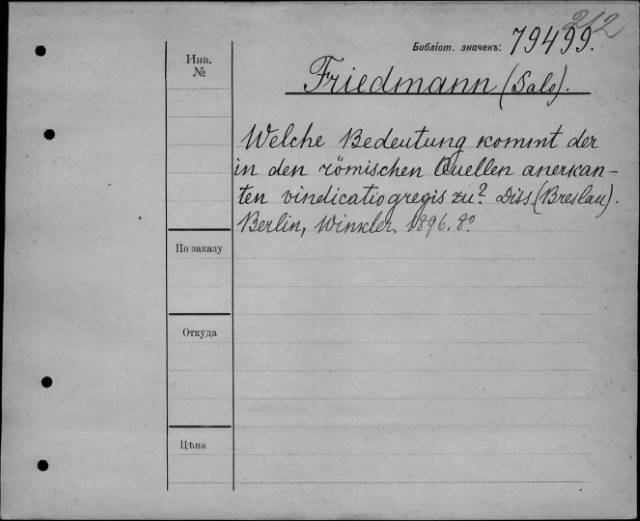 212
Библіот. значекъ: 79499.
Инв.
№
Friedmann (Salo).
Welche Bedeutung kommt der
in den römischen Quellen anerkan-
ten vindicatio gregis zu? Diss. (Breslau).
Berlin, Winkler. 1896. 8º
По заказу
Откуда
Цѣна